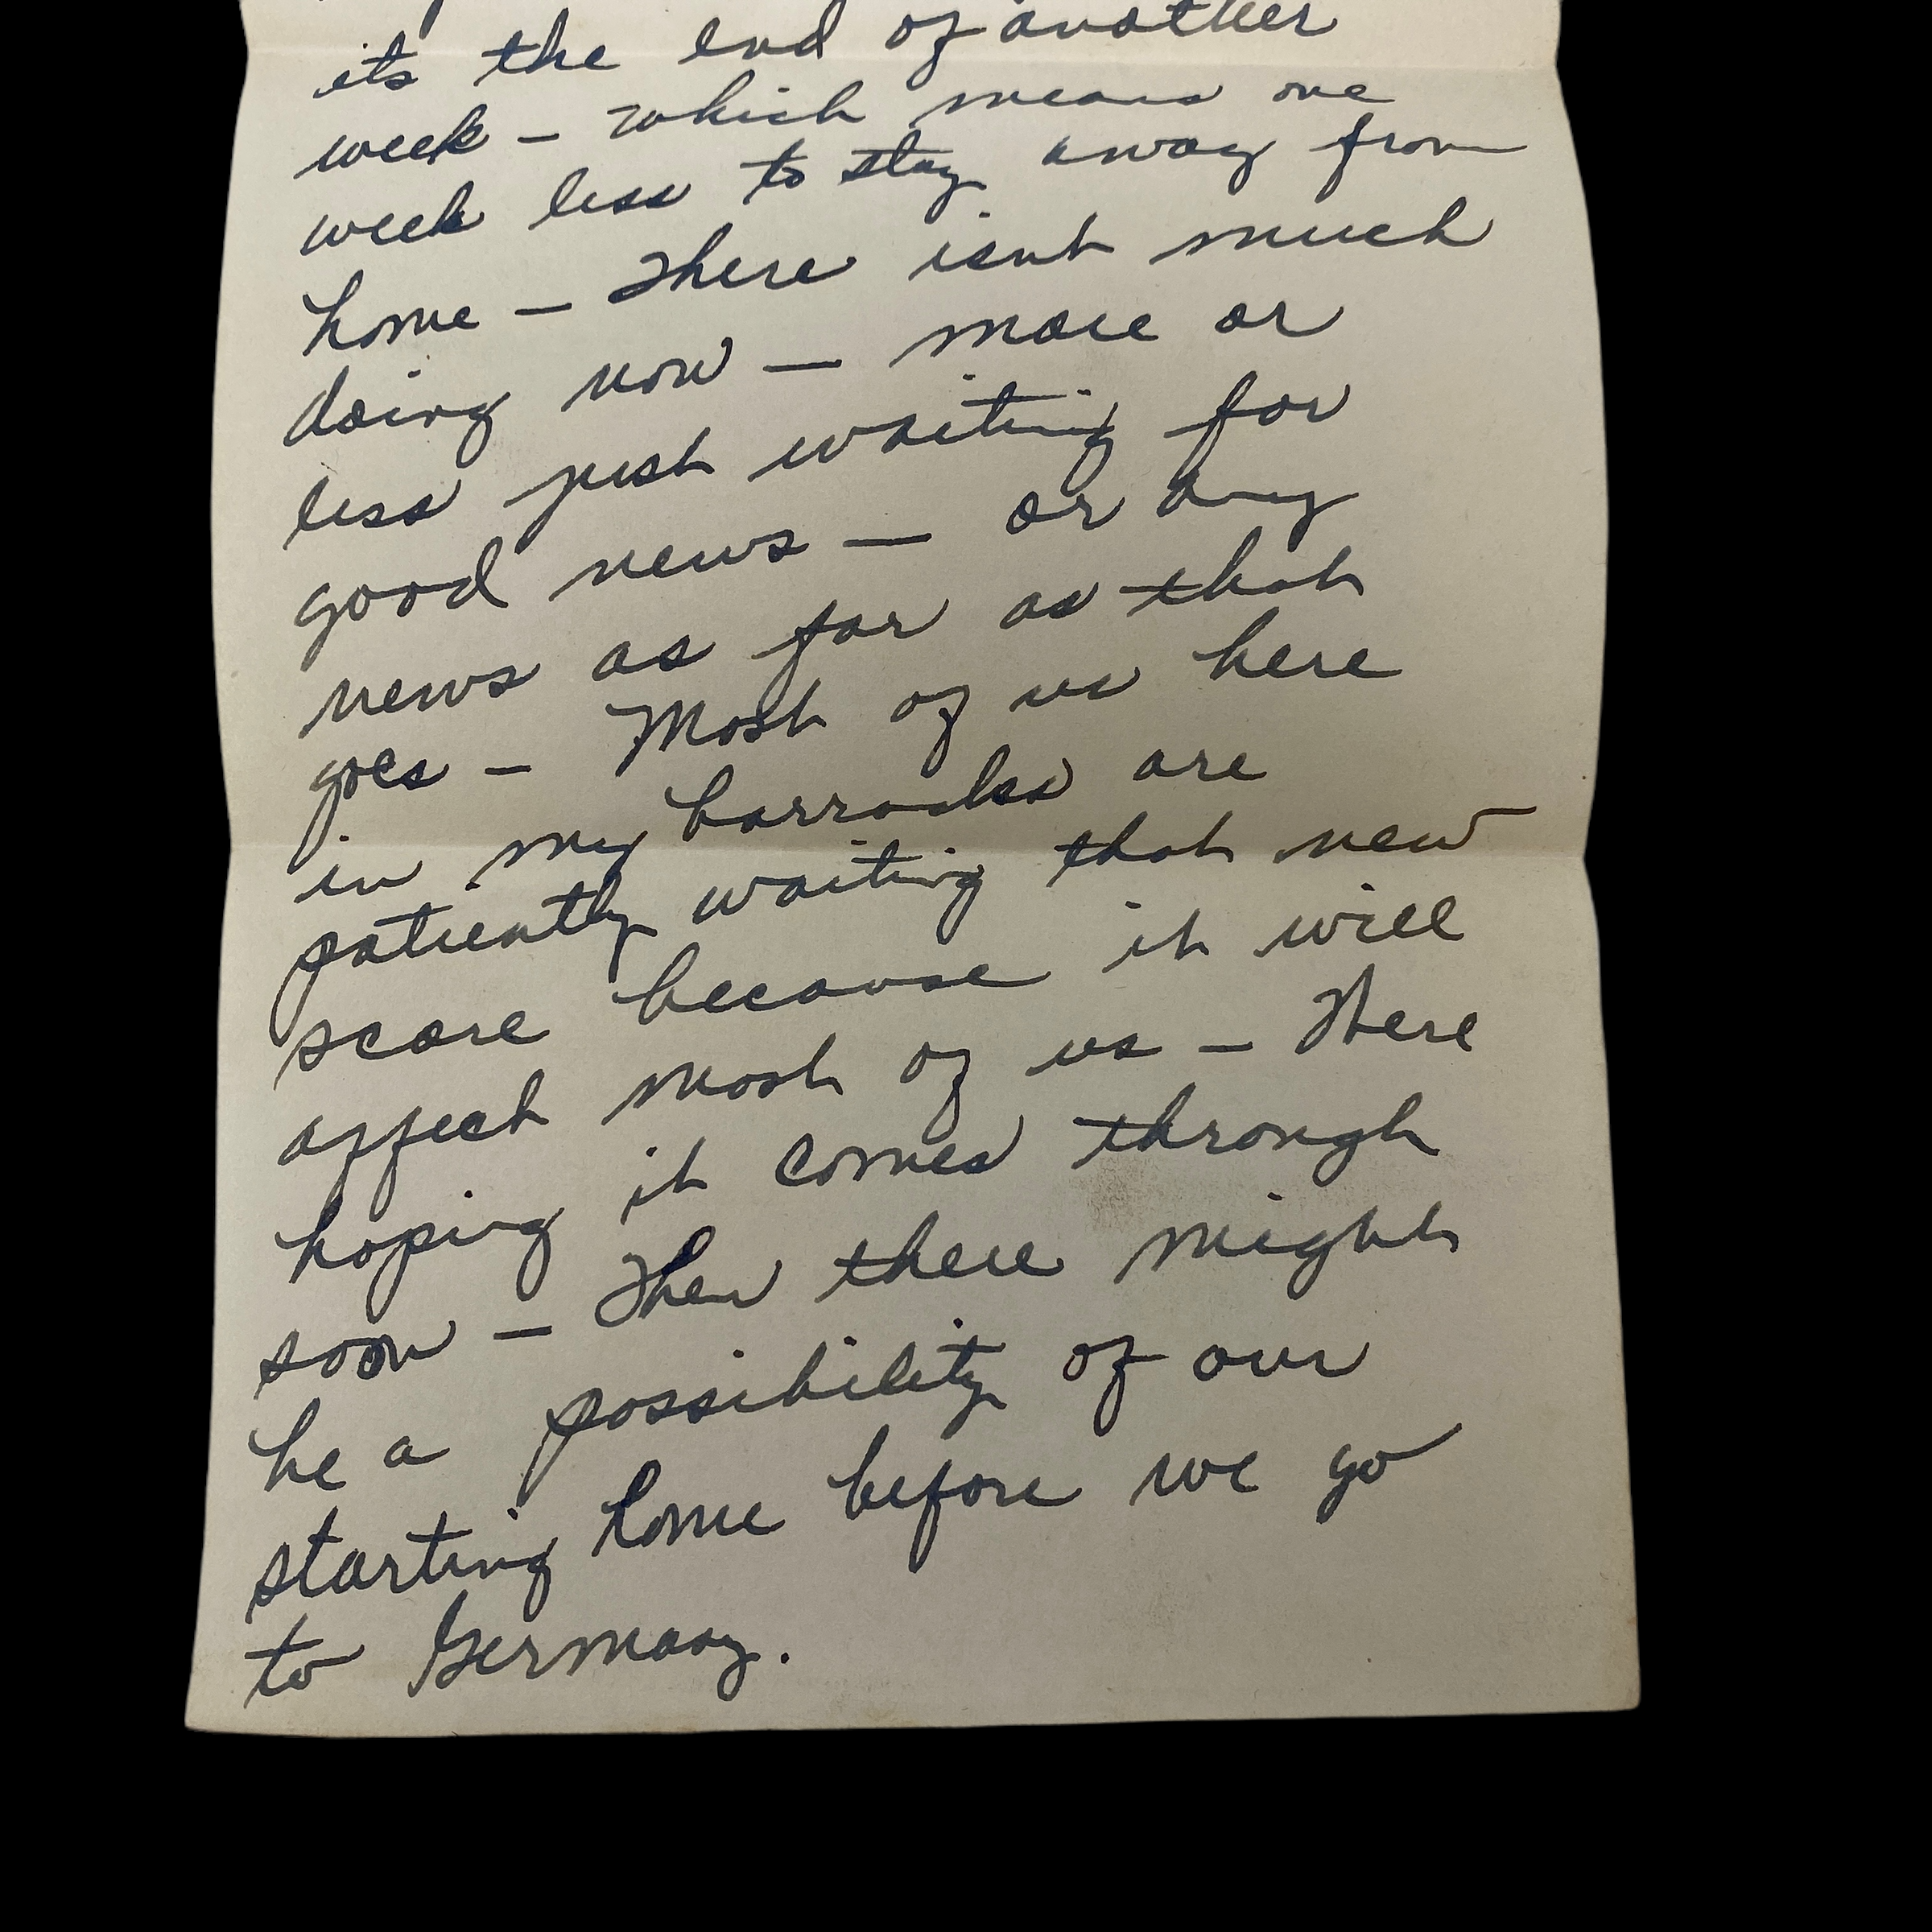 its the end of another
week – which means one
week less to stay away from
home – There isnt much
doing now – more or
less just waiting for
good news – or any
news as far as that
goes – Most of us here
in my barracks are
patiently waiting that new
score because it will
affect most of us – Here
hoping it comes through
soon – Then there might
be a possibility of our
starting home before we go
to Germany.